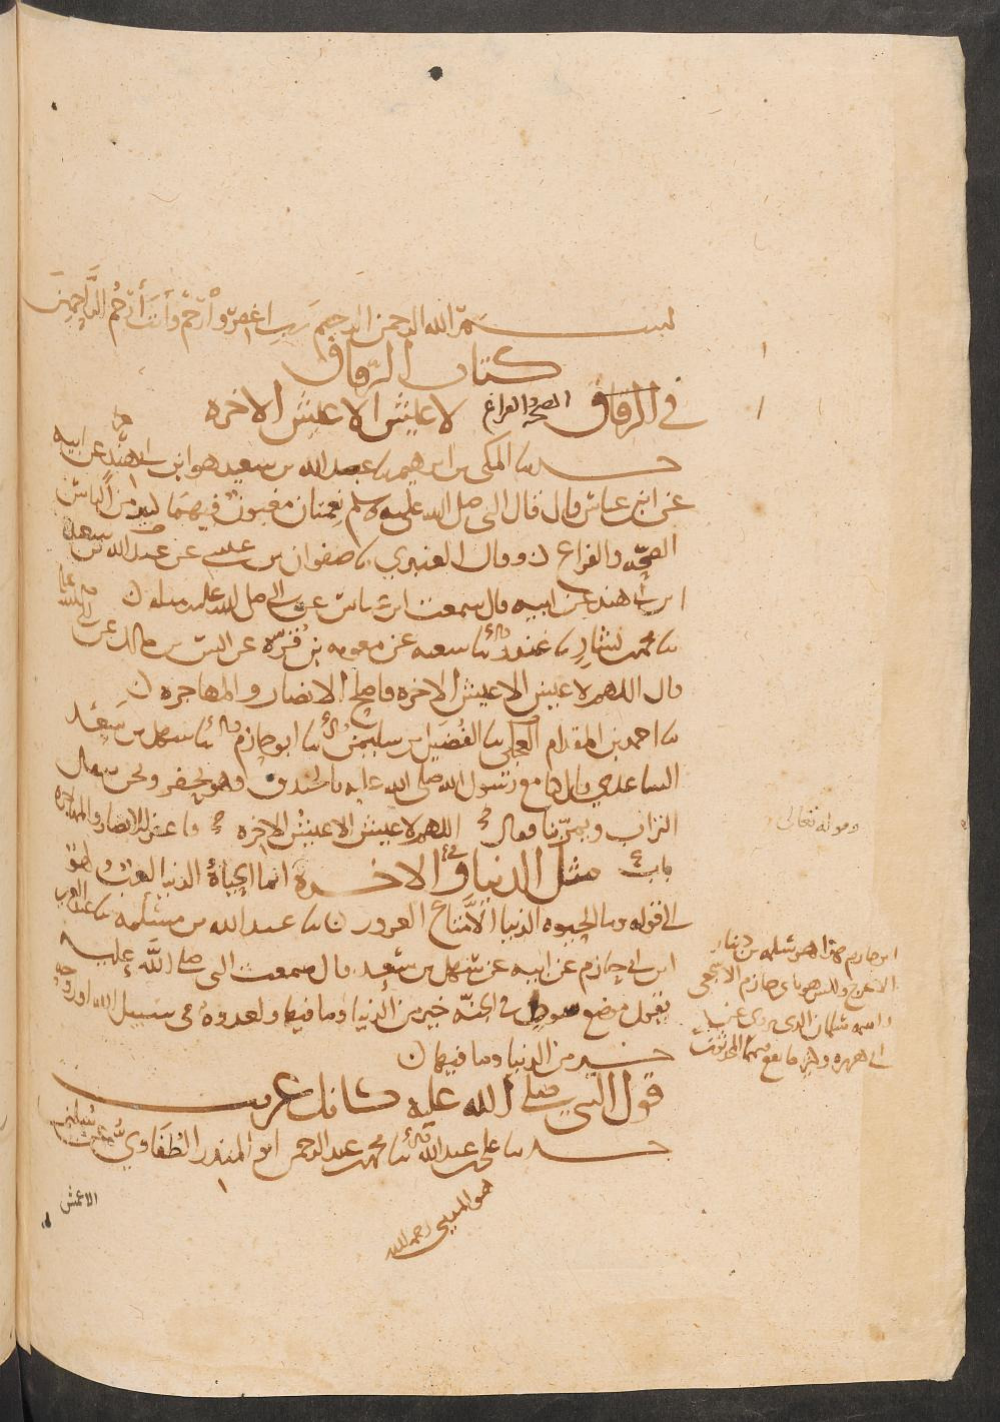 بسم الله الرحمن الرحيم رب اغفر وارحم وأنت أرحم الراحمين
كتاب الرقاق
في الرقاق الصحة والفراغ لا عيش الا عيش الاخره
حدثنا المكي بن ابرهيم نا عبد الله بن سعيد هو ابن ابي هند عن ابيه
عن ابن عباس قال قال النبي صلى الله عليه وسلم نعمتان مغبون فيهما كثير من الناس
الصحه والفراغ ن وقال العنبري نا صفوان بن عيسى عن عبد الله بن سعيد
ابن ابي هند عن ابيه قال سمعت ابن عباس عن النبي صلى الله عليه مثله ن
نا محمد بن بشار نا غندر قال نا شعبه عن معويه بن قره عن انس بن مالك عن النبي صلى الله عليه
قال اللهم لا عيش الا عيش الاخره فاصلح الانصار والمهاجره ن
نا احمد بن المقدام العجلي نا الفضيل بن سليمن قال نا ابو حازم قال نا سهل بن سعد
الساعدي قال كنا مع رسول الله صلى الله عليه بالخندق وهو يحفر ونحن ننقل
التراب ويمر بنا فقال اللهم لا عيش الا عيش الاخره فاغفر للانصار والمهاجره
باب مثل الدنيا في الاخره انما الحياة الدنيا لعب ولهو
الى قوله وما الحيوه الدنيا الا متاع الغرور ن نا عبد الله بن مسلمه نا عبد العزيز
ابن ابي حازم عن ابيه عن سهل بن سعد قال سمعت النبي صلى الله عليه
يقول موضع سوط في الجنه خير من الدنيا وما فيها ولغدوه في سبيل الله او روحه
خير من الدنيا وما فيها ن
قول النبي صلى الله عليه كانك غريب
حدثنا علي بن عبد الله قال نا محمد بن عبد الرحمن ابو المنذر الطفاوي عن سليمن
الاعمش
هو المديني رحمه الله
وقوله تعالى
ابن حازم هذا هو سلمه بن دينار
الاعرج وليس هو بابي حازم الاشجعي
واسمه سلمان الذي يروي عن
ابي هريره